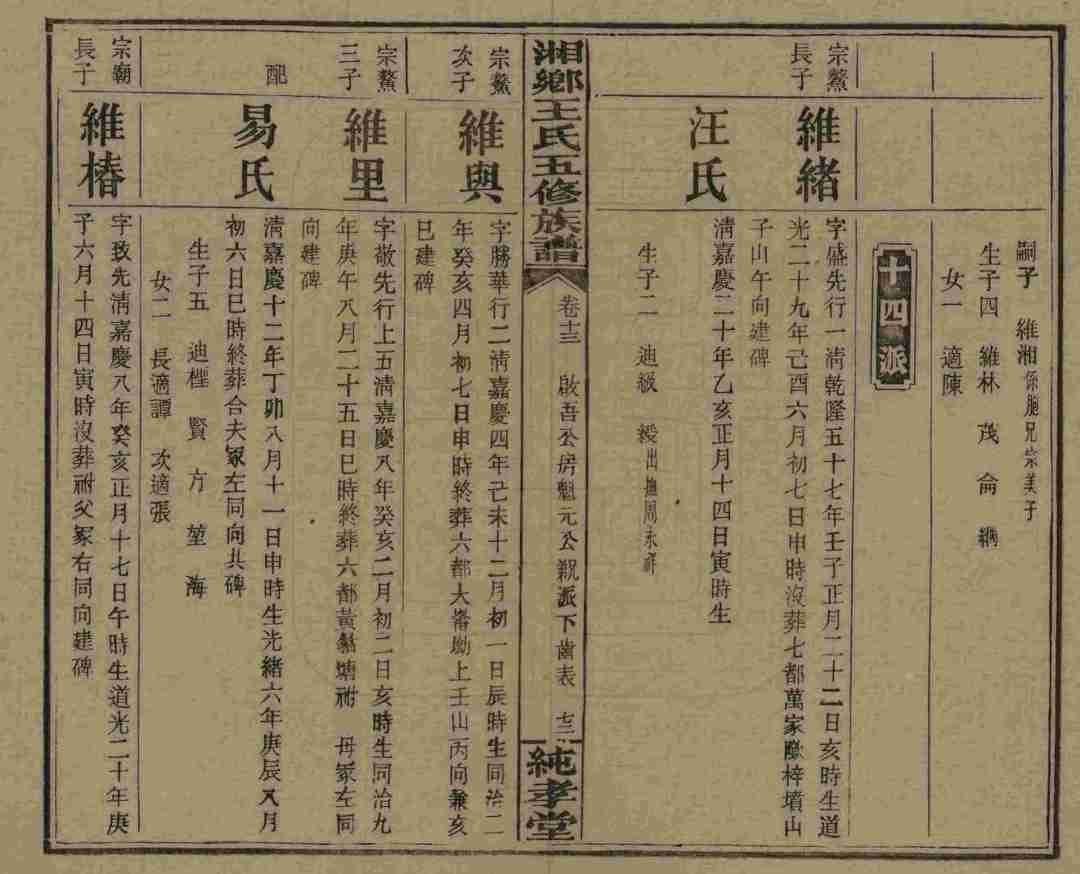 嗣子 維湘係胞兄宗美子
生子四 維林 茂 侖 綱
女一 適陳
十四派
宗鰲長子
維緒
字盛先行一淸乾隆五十七年壬子正月二十二日亥時生道
光二十九年己酉六月初七日申時沒葬七都萬家 梓墳山
子山午向建碑
汪氏
淸嘉慶二十年乙亥正月十四日寅時生
生子二 迪級 綬出撫周永祥
湘鄉王氏五修族譜
卷十三 啟吾公房魁元公親派下齒表 七三
純孝堂
宗鰲次子
維與
字勝華行二淸嘉慶四年己未十二月初一日辰時生同治二
年癸亥四月初七日申時終葬六都大崙坳上壬山丙向兼亥
巳建碑
宗鰲三子
維里
字敬先行上五淸嘉慶八年癸亥二月初二日亥時生同治九
年庚午八月二十五日巳時終葬六都黃 塘祔 母冢左同
向建碑
配
易氏
淸嘉慶十二年丁卯八月十一日申時生光緒六年庚辰八月
初六日巳時終葬合夫冢左同向共碑
生子五 迪桱 賢 方 堃 海
女二 長適譚 次適張
宗廟長子
維椿
字致先淸嘉慶八年癸亥正月十七日午時生道光二十年庚
子六月十四日寅時沒葬祔父冢右同向建碑